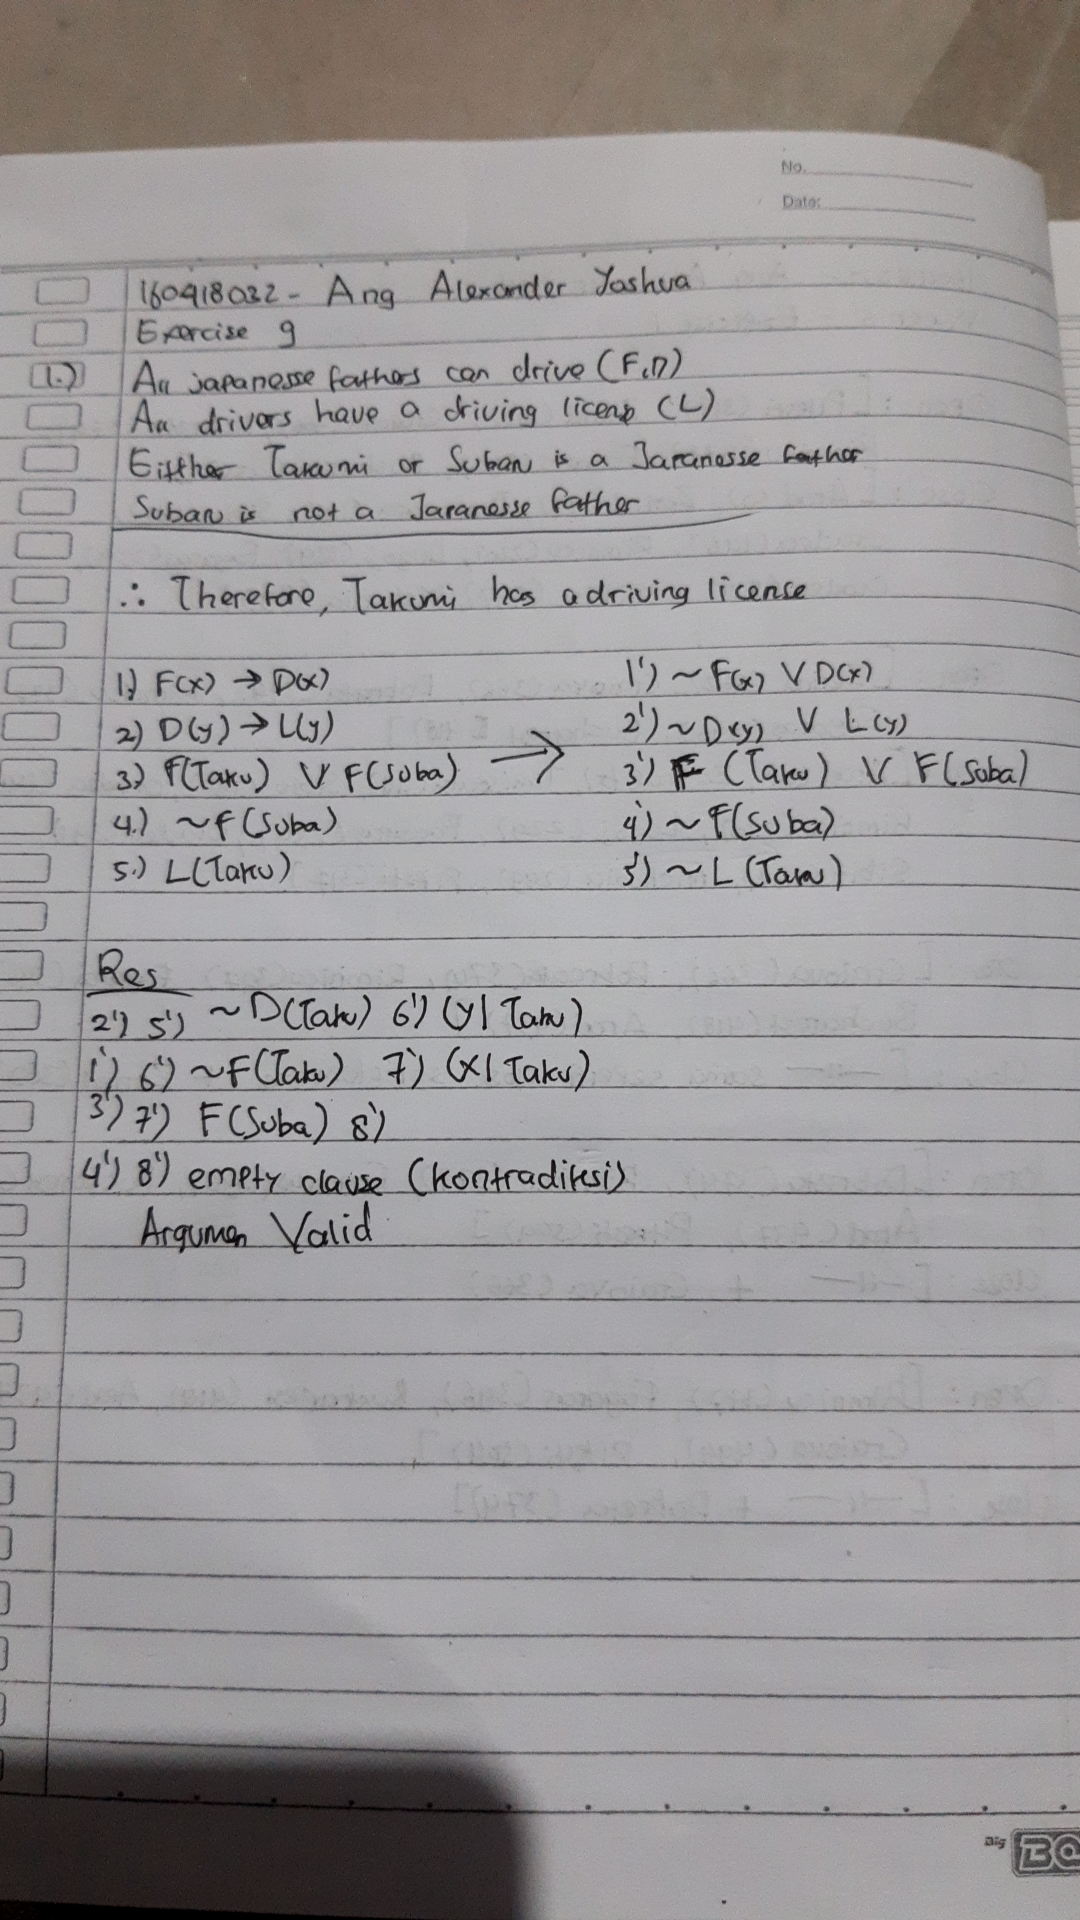 No.
Date:
160418032 - Ang Alexander Yoshua
Exercise 9
1.) All japanesse fathers can drive (F,D)
All drivers have a driving licens (L)
Eifther Takumi or Subaru is a Japanesse father
Subaru is not a Japanesse father
∴ Therefore, Takumi has a driving license
1) F(x) → D(x) 1') ~ F(x) V D(x)
2) D(y) → L(y) 2') ~ D(y) V L(y)
3) F(Taku) V F(Suba) → 3') F (Taku) V F(Suba)
4.) ~F(Suba) 4') ~ F(Suba)
5.) L(Taku) 5') ~ L (Taku)
Res
2') 5') ~D(Taku) 6') (y| Taku)
1') 6') ~F(Taku) 7') (x| Taku)
3') 7') F(Suba) 8')
4') 8') empty clause (kontradiksi)
Argumen Valid
Big BO